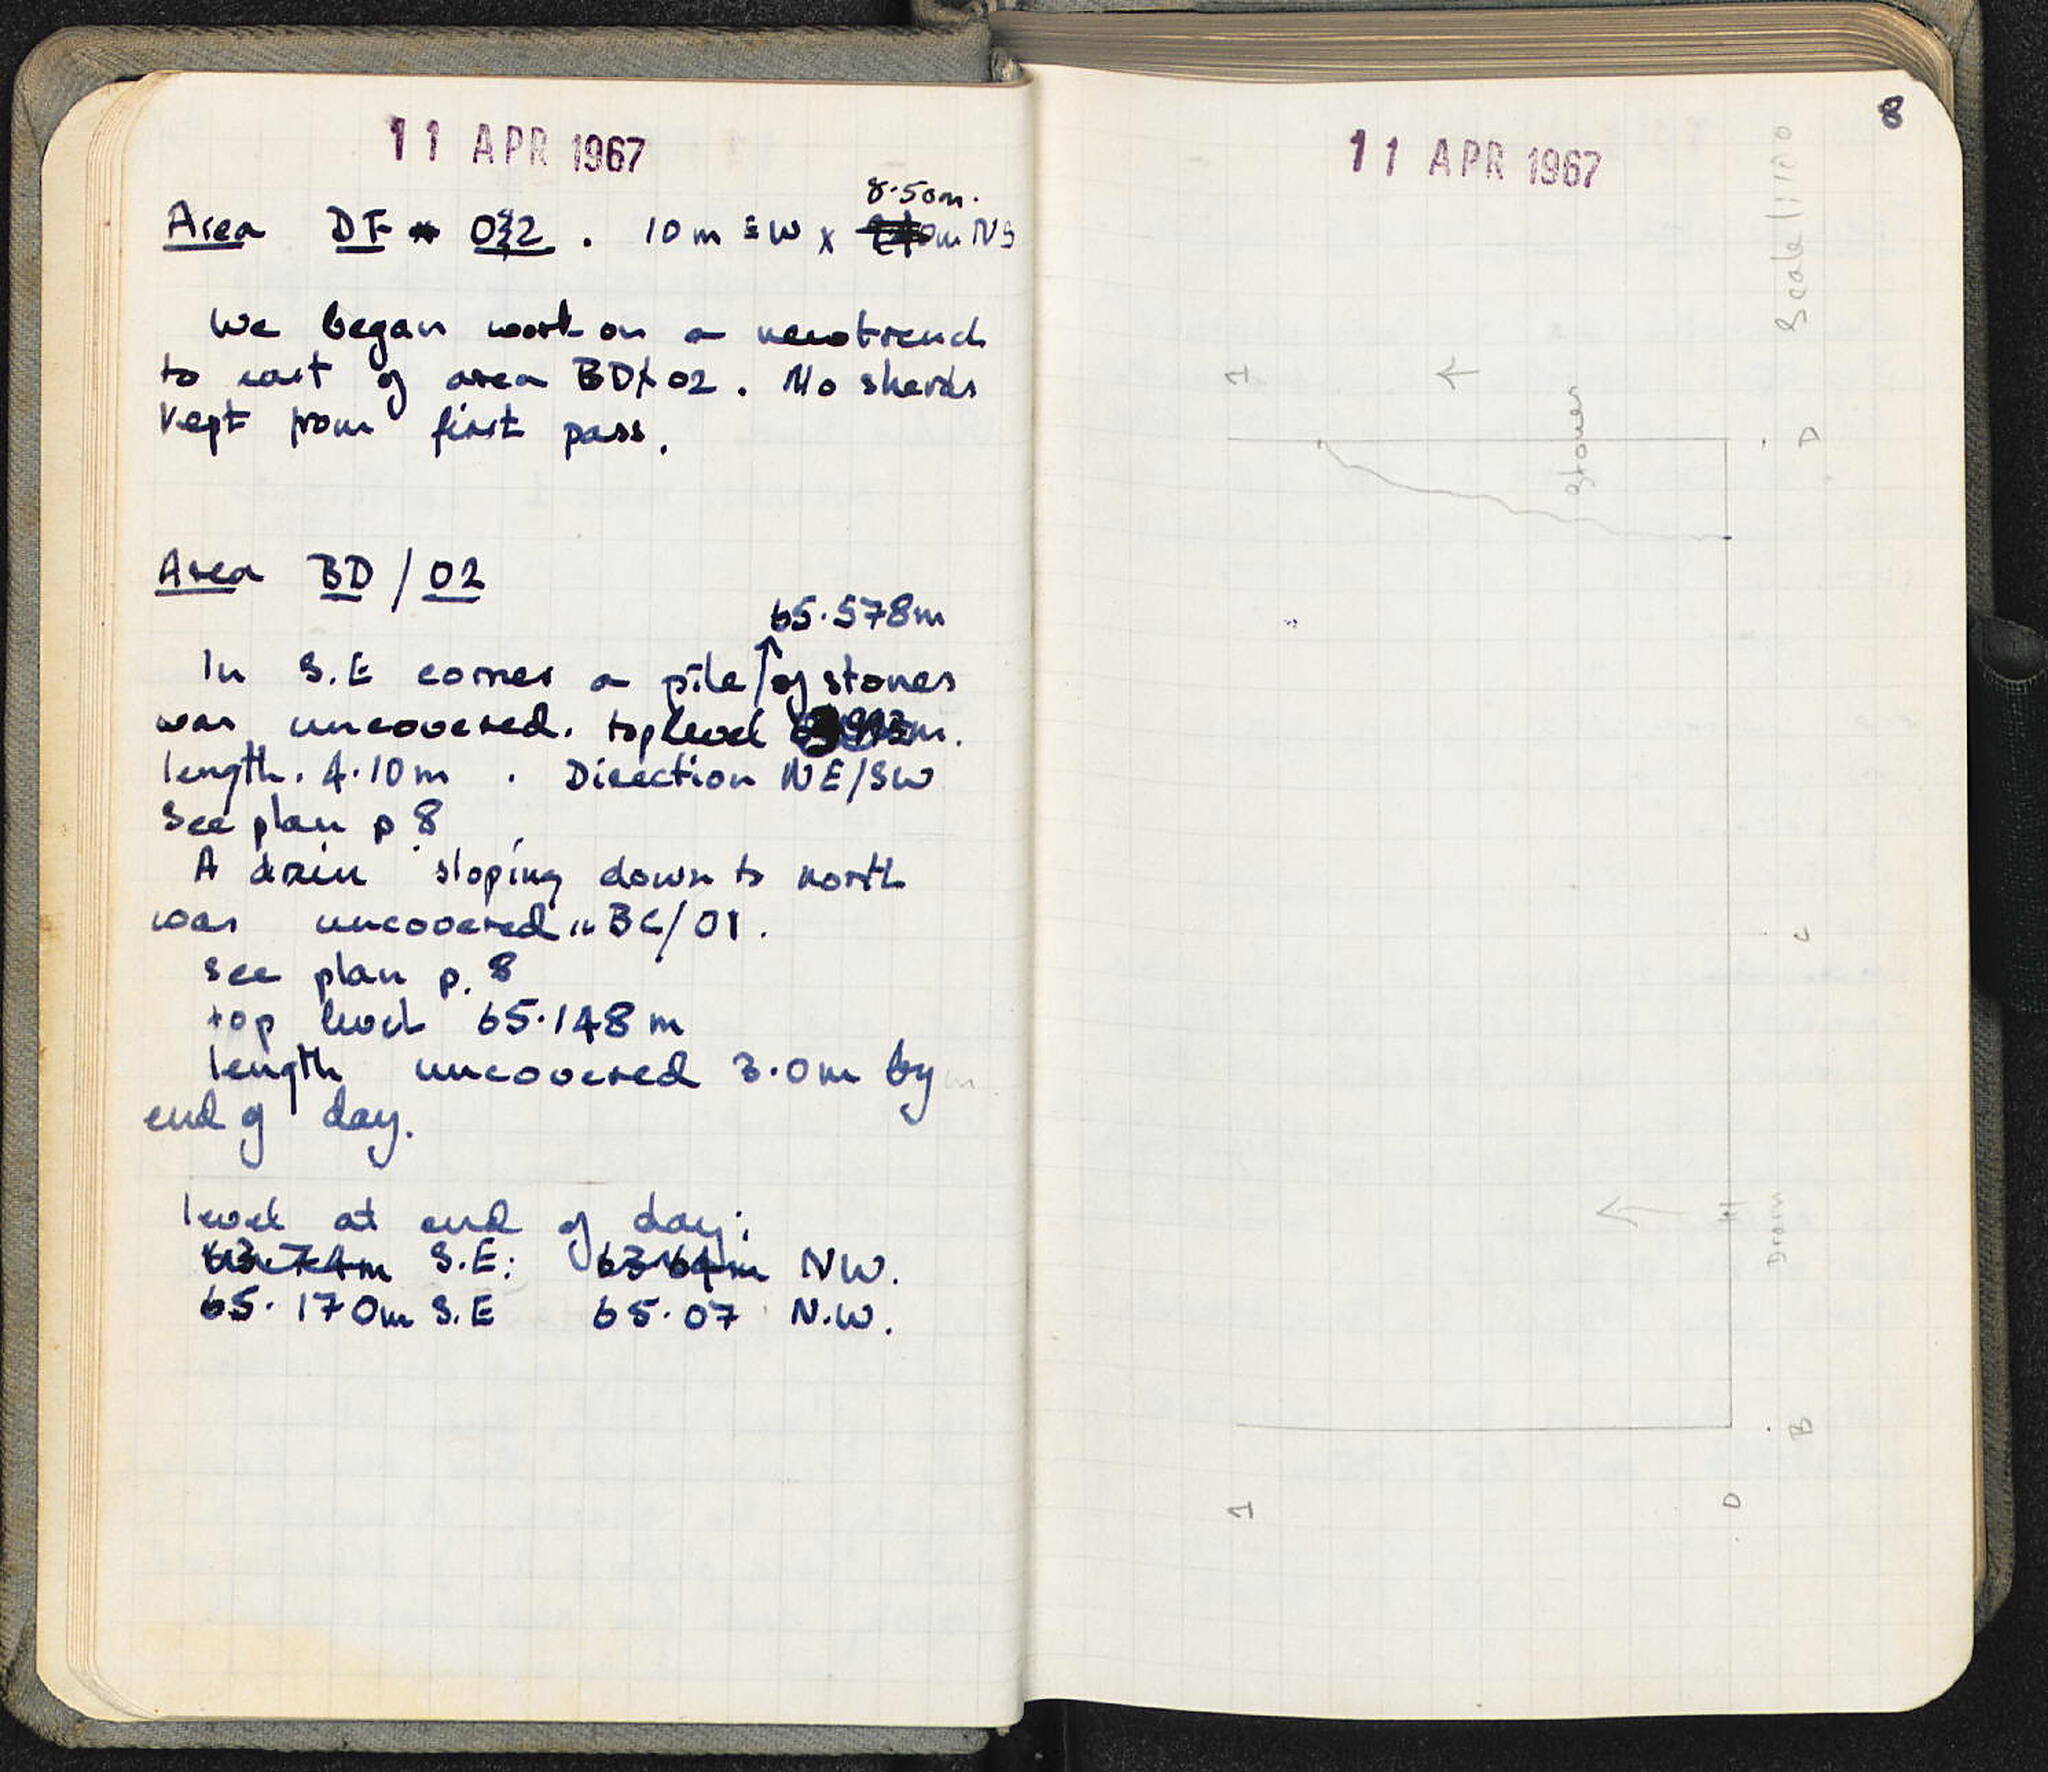 11 APR 1967
8.50m.
Area DF 02. 10m EW x m NS
We began work on a new trench
to east of area BD/02. No sherds
kept from first pass.
Area BD/02
65.578m
In S.E corner a pile of stones
was uncovered. top level m.
length. 4.10m. Direction NE/SW
See plan p 8
A drain sloping down to north
was uncovered in BC/01.
see plan p. 8
top level 65.148m
length uncovered 3.0m by
end of day.
level at end of day:
63.74m S.E: 63.64m NW.
65.170m S.E 65.07 N.W.
8
11 APR 1967
Scale 1:100
1
Stones
D
C
Drain
B
1
0